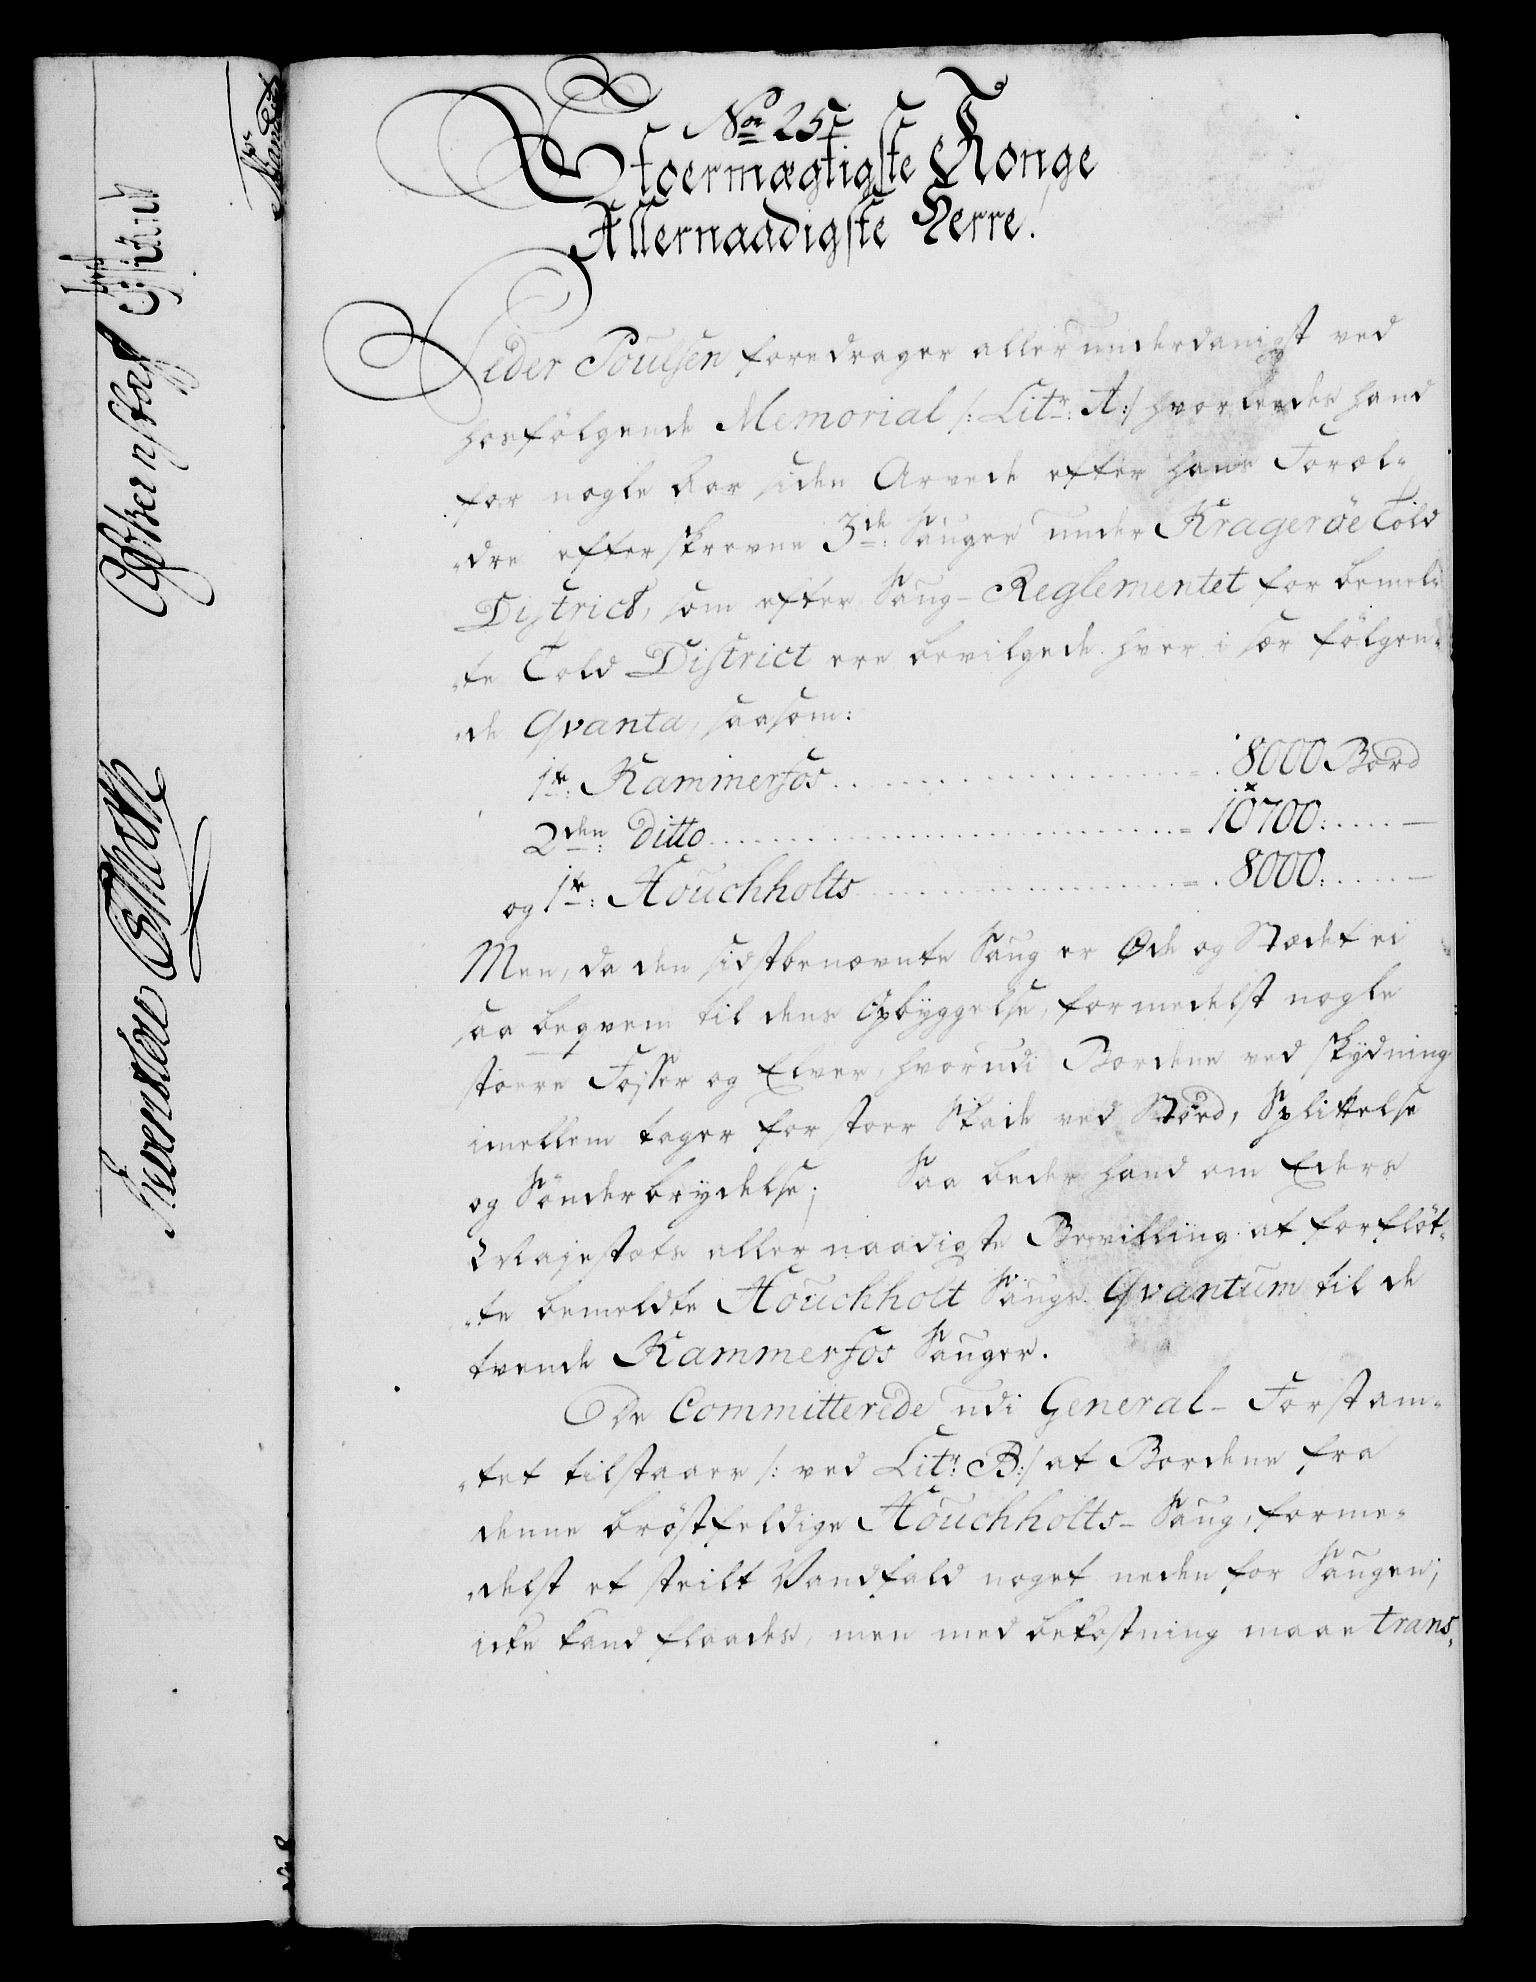 No 25
Stoermægtigste Konge
Allernaadigste Herre!
Peder Poulsen foredrager allerunderdanigst ved
hosfölgende Memorial /: Litr: A:/ hvorledes hand
for nogle Aar siden Arvede efter hans Foræl-
„dre efterskrevne 3de Sauger under Krageröe Told
District, som efter Saug-Reglementet for bemel-
„te Told District ere bevilgede hver i sær fölgen-
„de Qvanta, saasom:
1te: Kammerfos . . . . . . 8000 Bord
2den: Ditto . . . . . . 10700: . . . . —
og 1te: Houchholts . . . . . . 8000: . . . . —
Men, da den sidstbenævnte Saug er Øde og Stædet ei
saa beqvem til dens Opbyggelse, formedelst nogle
stoere Fosser og Elver, hvorudi Bordene ved skydning
imellem tager for stoer Skade ved Stöed, Splittelse
og Sönderbrydelse; Saa beder hand om Eders
Majestæts allernaadigste Bevilling at forflöt-
„te bemeldte Houchholt Saugs Qvantum til de
tvende Kammerfos Sauger.
De Committerede udi General-Forstam-
„tet tilstaaer /: ved Litr: B:/ at Bordene fra
denne bröstfeldige Houchholts-Saug, forme-
„delst et steilt Vandfald noget neden for Saugen,
icke kand flaades, men med bekostning maae trans-